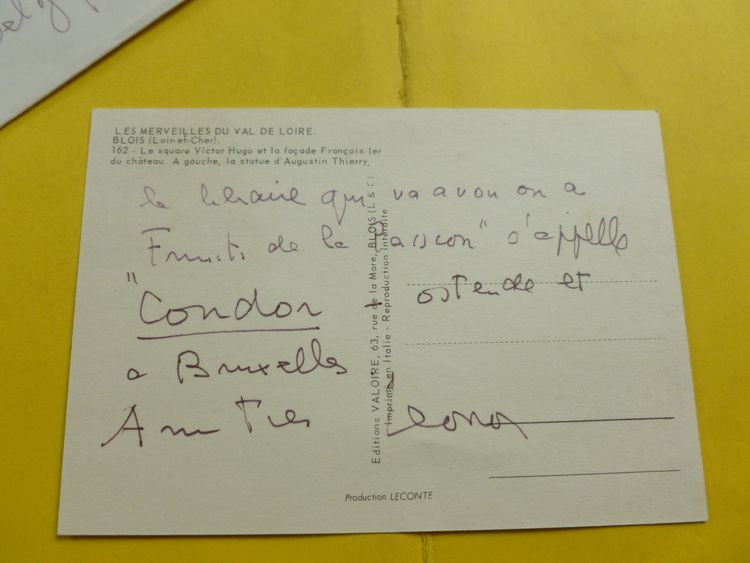 LES MERVEILLES DU VAL DE LOIRE.
BLOIS (Loir-et-Cher).
162 - Le square Victor Hugo et la façade François Ier
du château. A gauche, la statue d'Augustin Thierry.
le libraire qui va avoir on a
Fruits de la Passion" s'appelle
"Condor ostende et
a Bruxelles
Amities
Editions VALOIRE, 63, rue de la Mare, BLOIS (L & C)
Imprimé en Italie - Reproduction Interdite
Production LECONTE